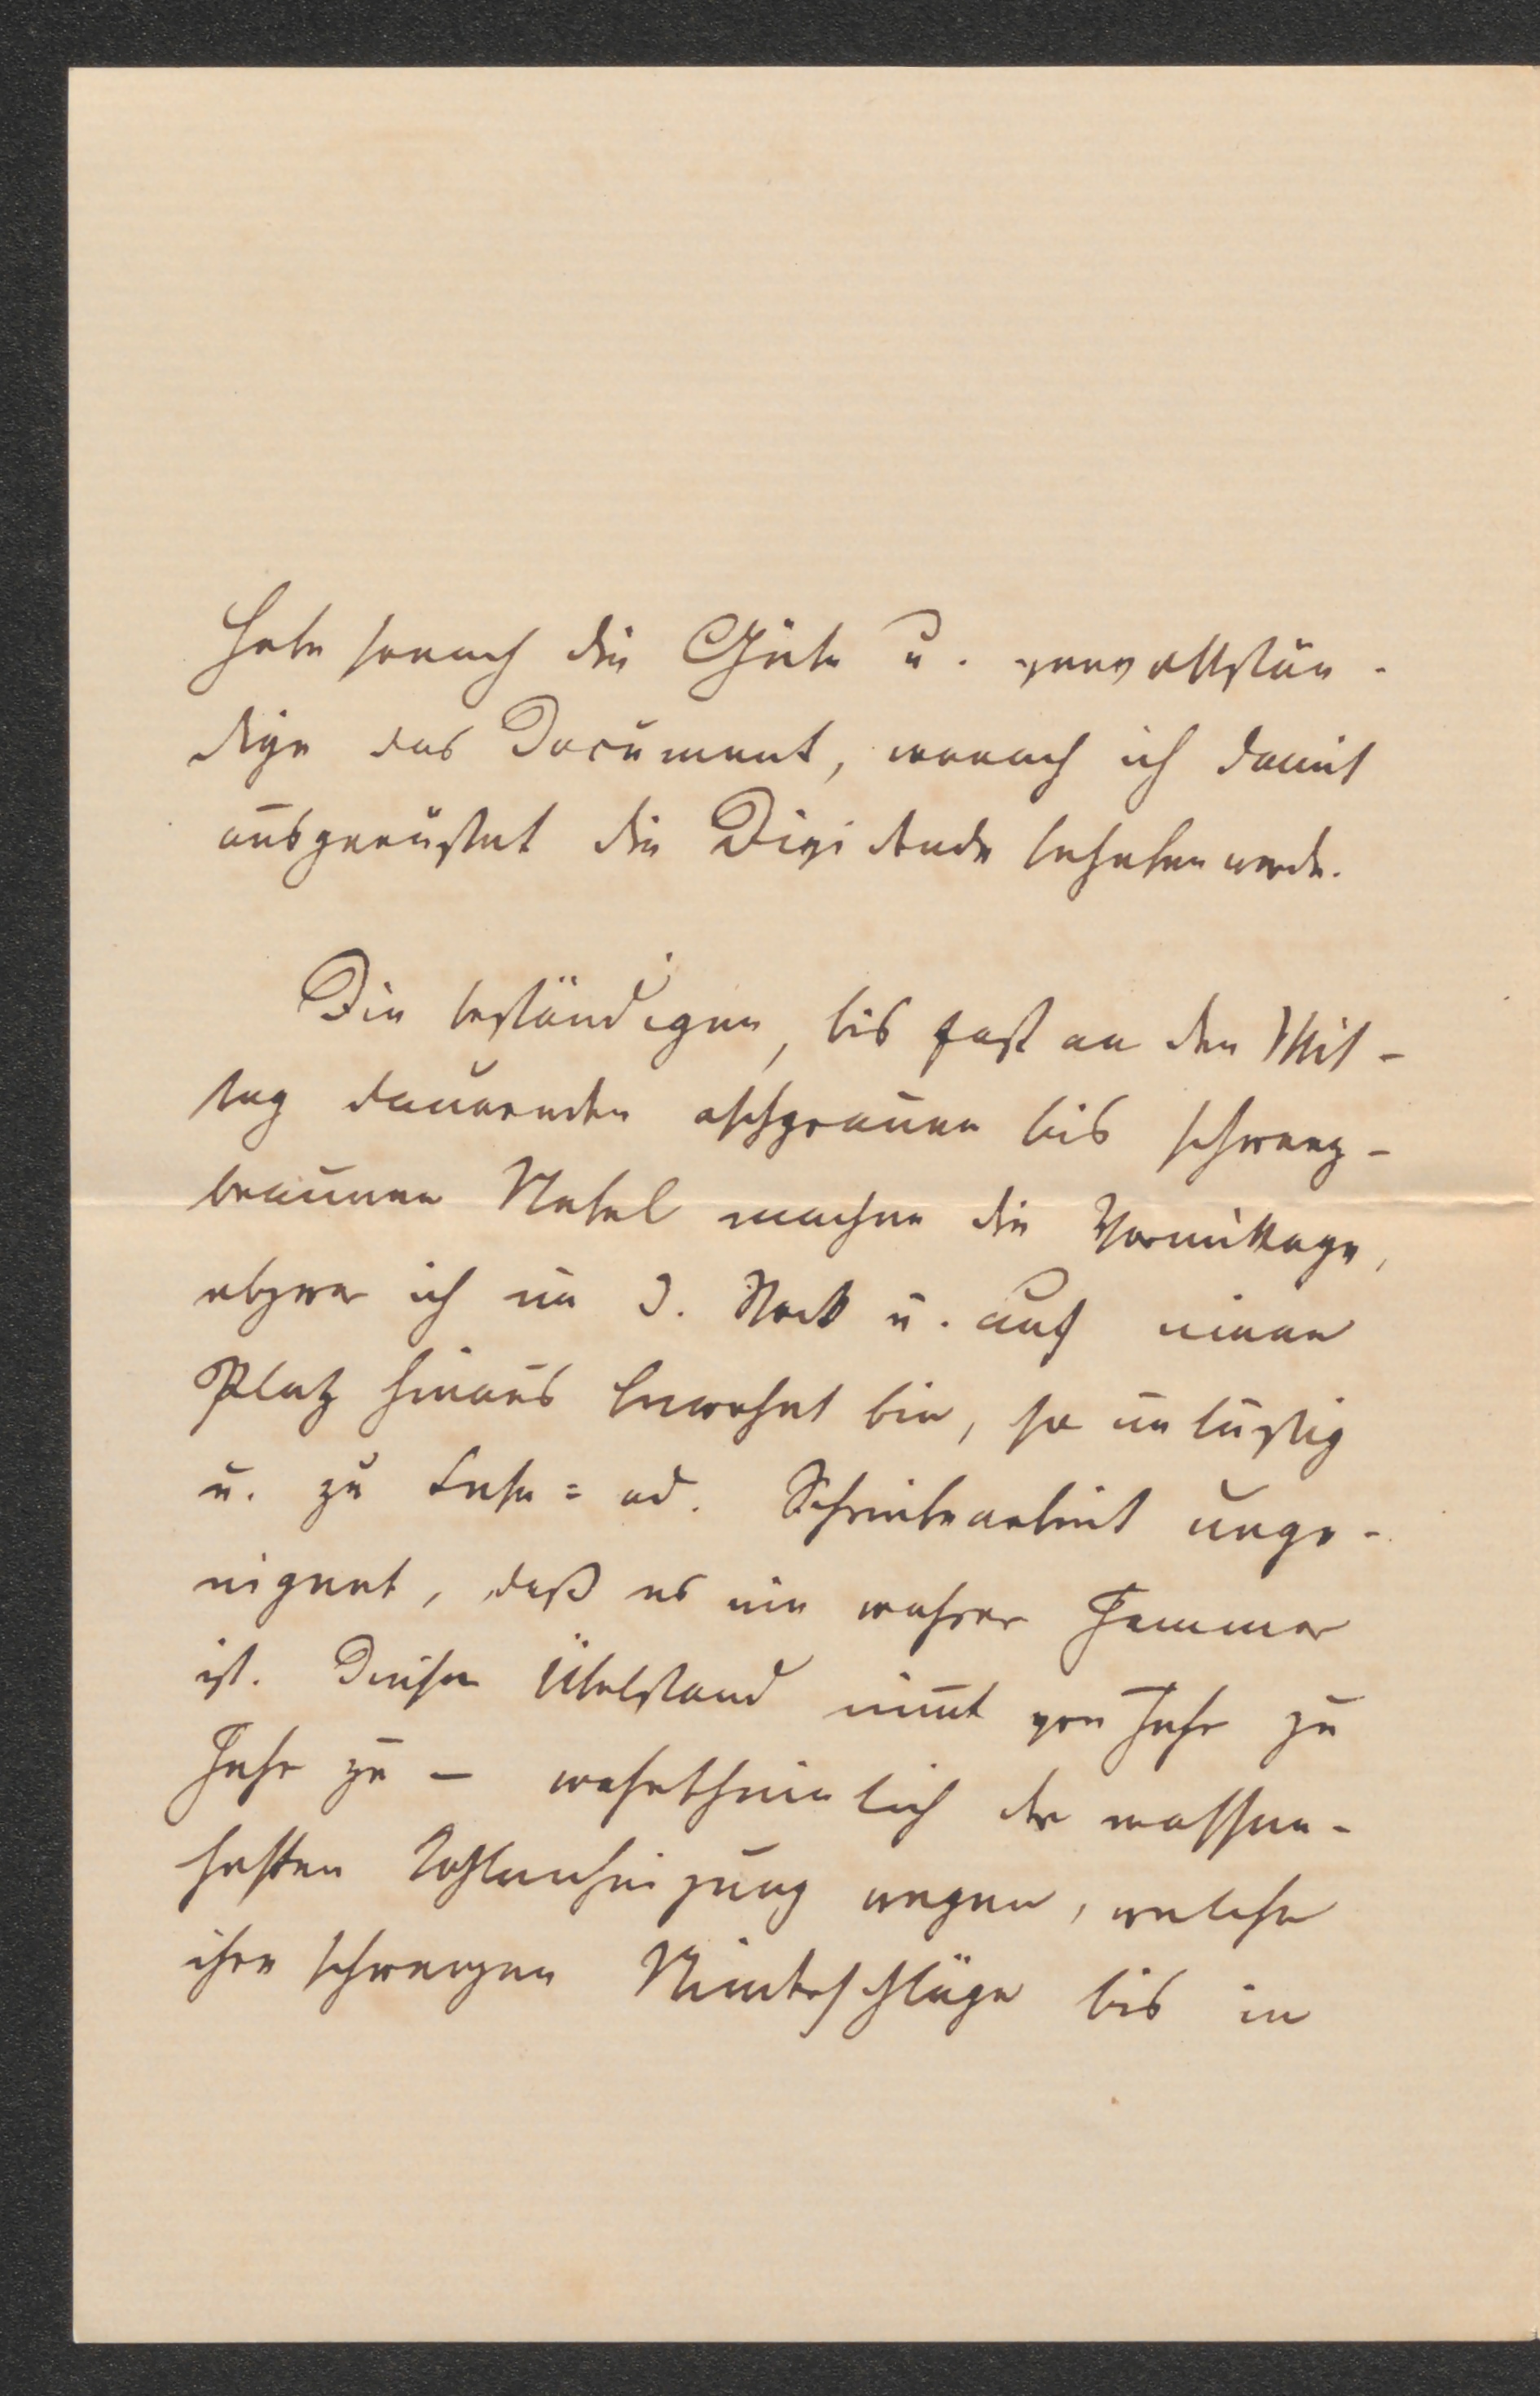 Habe sonach die Güte u. vervollstän-
dige das Document, wonach ich damit
ausgerüstet die Dividende beheben werde.
Die beständigen, bis fast an den Mit-
tag dauernden aschgrauen bis schwarz-
braunen Nebel machen die Vormittage,
obzwar ich im 3. Stock u. auf einen
Platz hinaus bewohnt bin, so unlustig
u. zu Lese= od. Schreibearbeit unge-
eignet, daß es ein wahrer Jammer
ist. Dieser Übelstand nimt von Jahr zu
Jahr zu – wahrscheinlich der massen-
haften Kohlenheizung wegen, welche
ihre schwarzen Niederschläge bis in